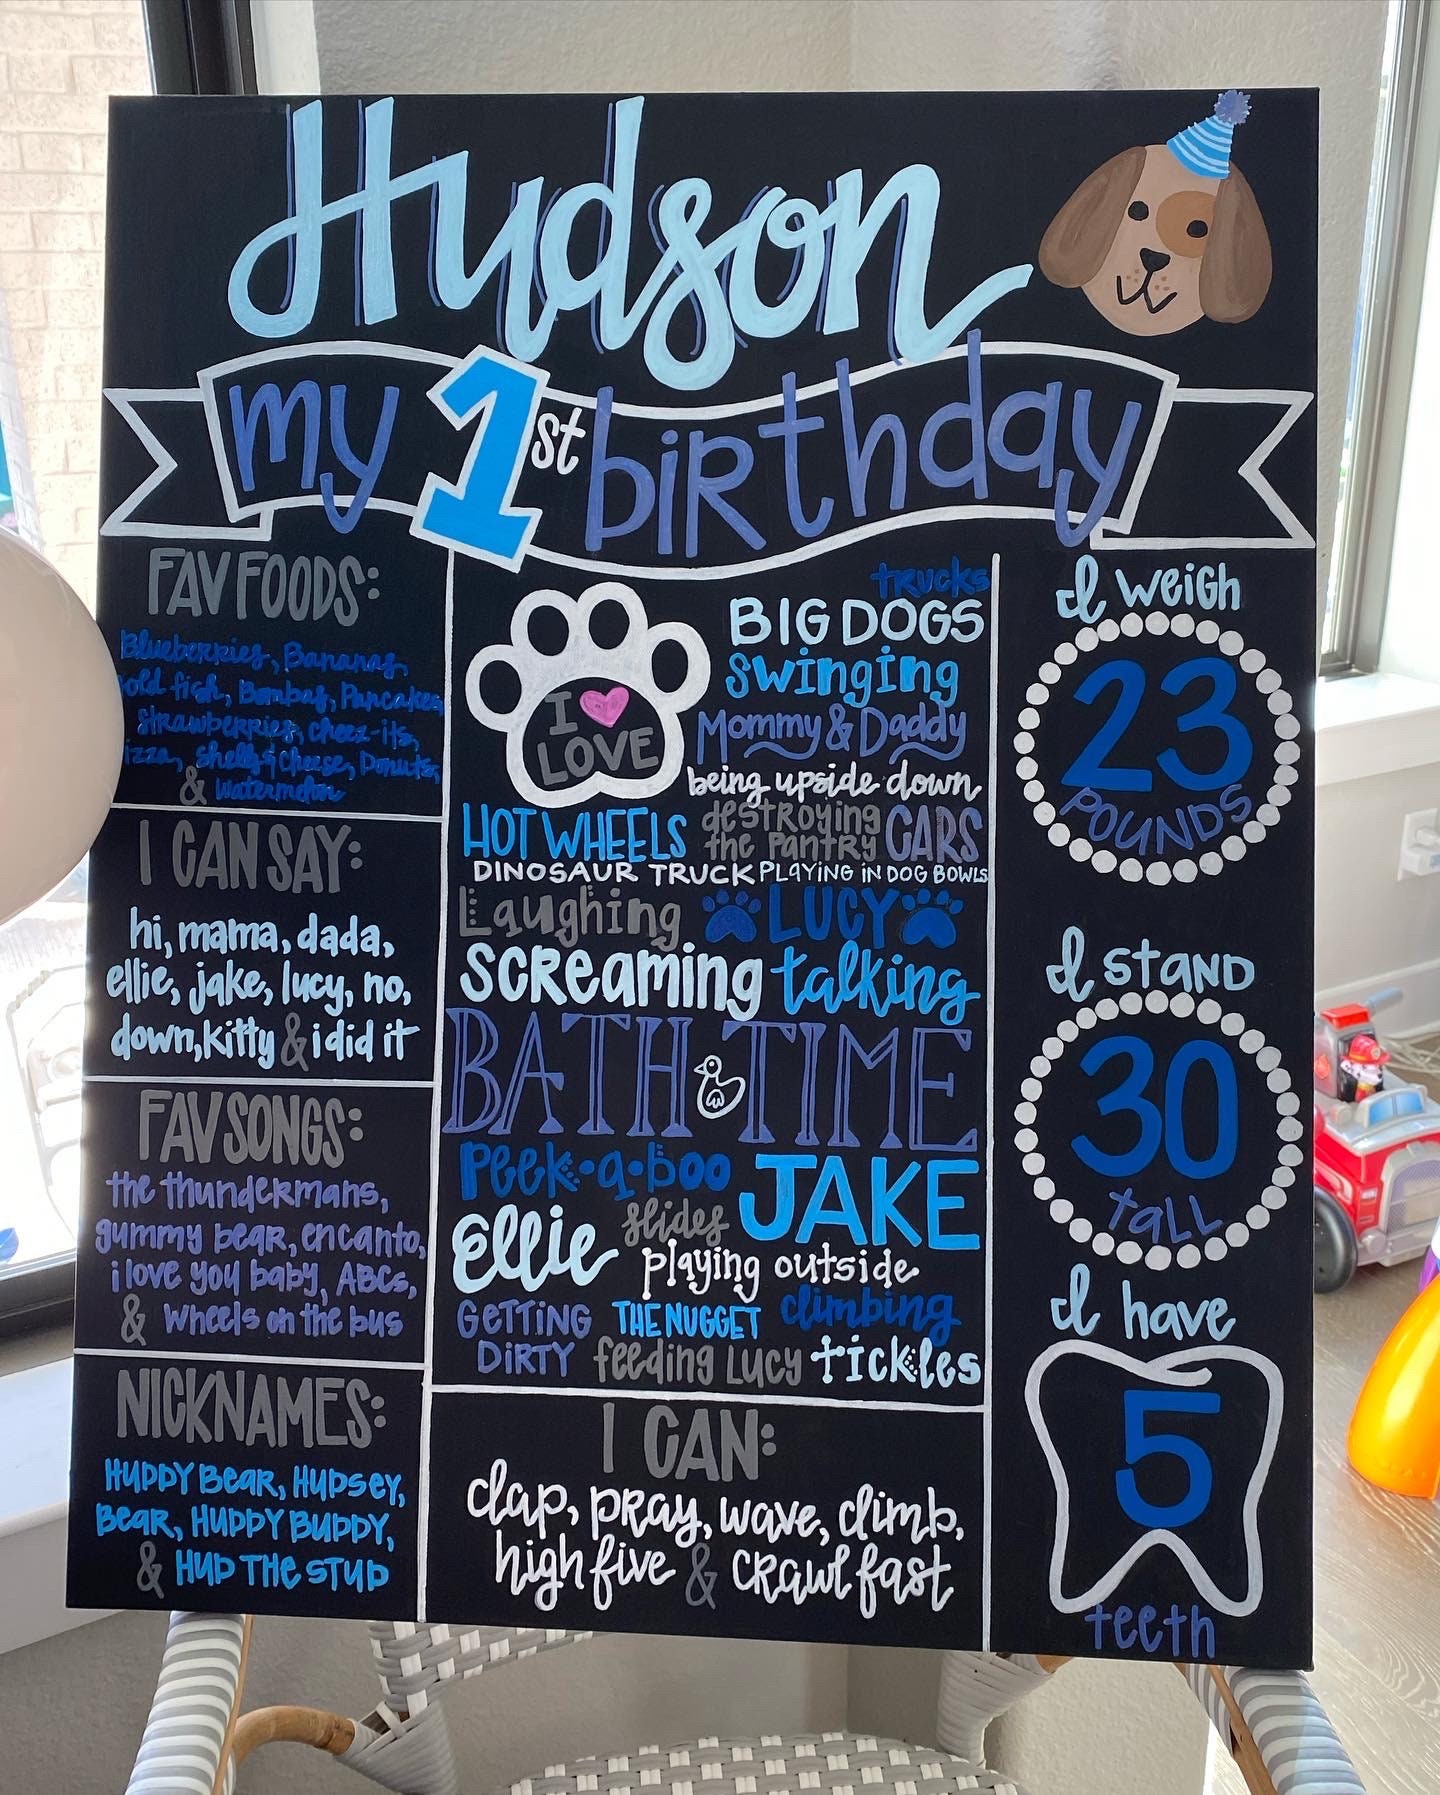 Hudson
my 1st birthday
FAV FOODS:
Blueberries, Bananas,
old fish, Bambas, Pancakes
Strawberries, cheez-its,
izza, shells & Cheese, Donuts,
& Watermelon
I CAN SAY:
hi, mama, dada,
ellie, jake, lucy, no,
down, kitty & i did it
FAV SONGS:
the thundermans,
gummy bear, encanto,
i love you baby, ABCs,
& Wheels on the bus
NICKNAMES:
HUDDY BEAR, HUDSEY,
BEAR, HUDDY BUDDY,
& HUD THE STUD
I ♥
LOVE
trucks
BIG DOGS
swinging
Mommy & Daddy
being upside down
HOT WHEELS destroying the pantry CARS
DINOSAUR TRUCK PLAYING IN DOG BOWLS
Laughing LUCY
SCREAMING talking
BATH TIME
Peek-a-boo JAKE
Ellie slides
playing outside
GETTING DIRTY THE NUGGET climbing
feeding LUCY tickles
I CAN:
clap, pray, wave, climb,
high five & crawl fast
I weigh
23
POUNDS
I STAND
30
tall
I have
5
teeth